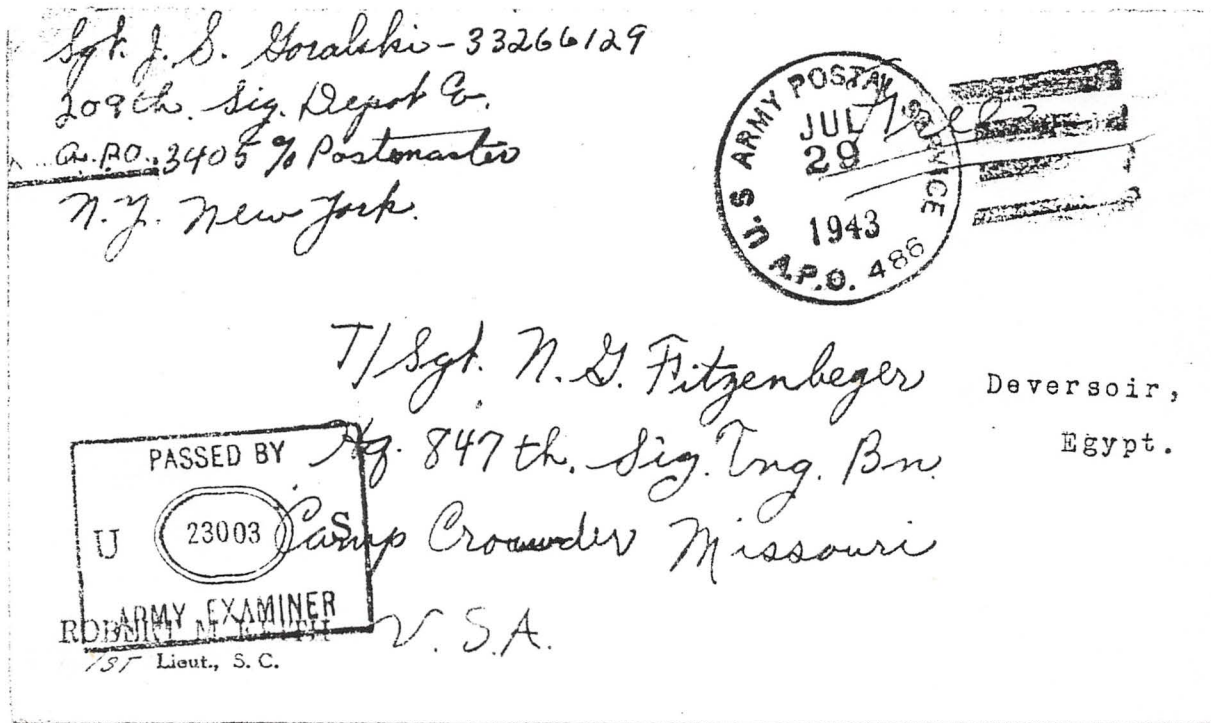 Sgt. J. S. Goralski - 33266129
209th. Sig. Depot Co.
A.P.O. 3405 % Postmaster
N.Y. New York.
U.S ARMY POSTAL SERVICE
JUL
29
1943
A.P.O. 486
Free
T/Sgt. N. G. Fitzenbeger
Hq. 847th. Sig. Tng. Bn.
Camp Crowder Missouri
U.S.A.
Deversoir,
Egypt.
PASSED BY
U 23003 S
ARMY EXAMINER
ROBERT M.
1ST Lieut., S. C.